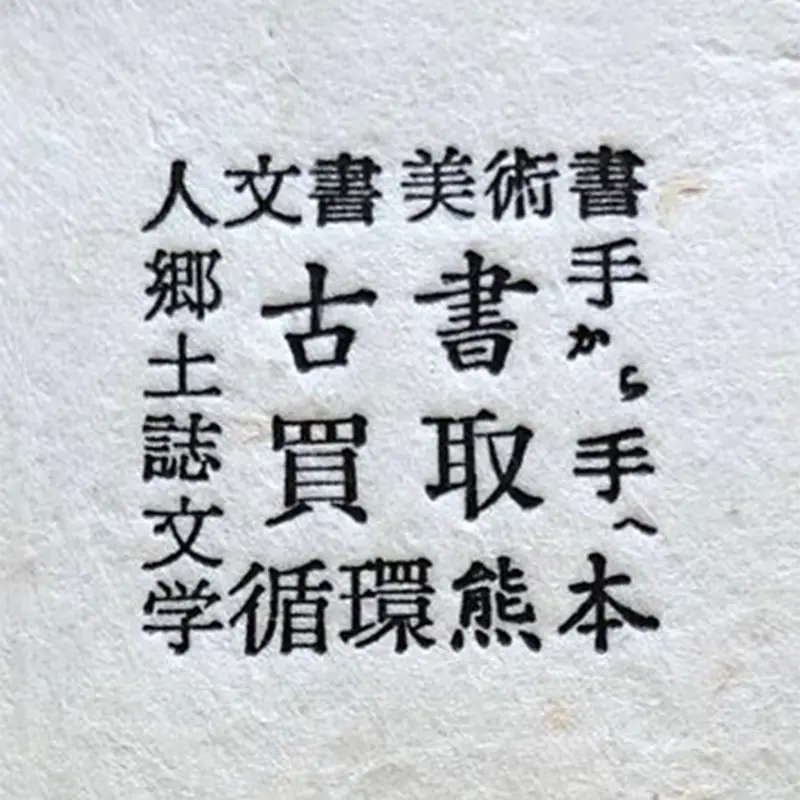 人文書 美術書
郷土誌文学
古書
買取
手から手へ
循環熊本